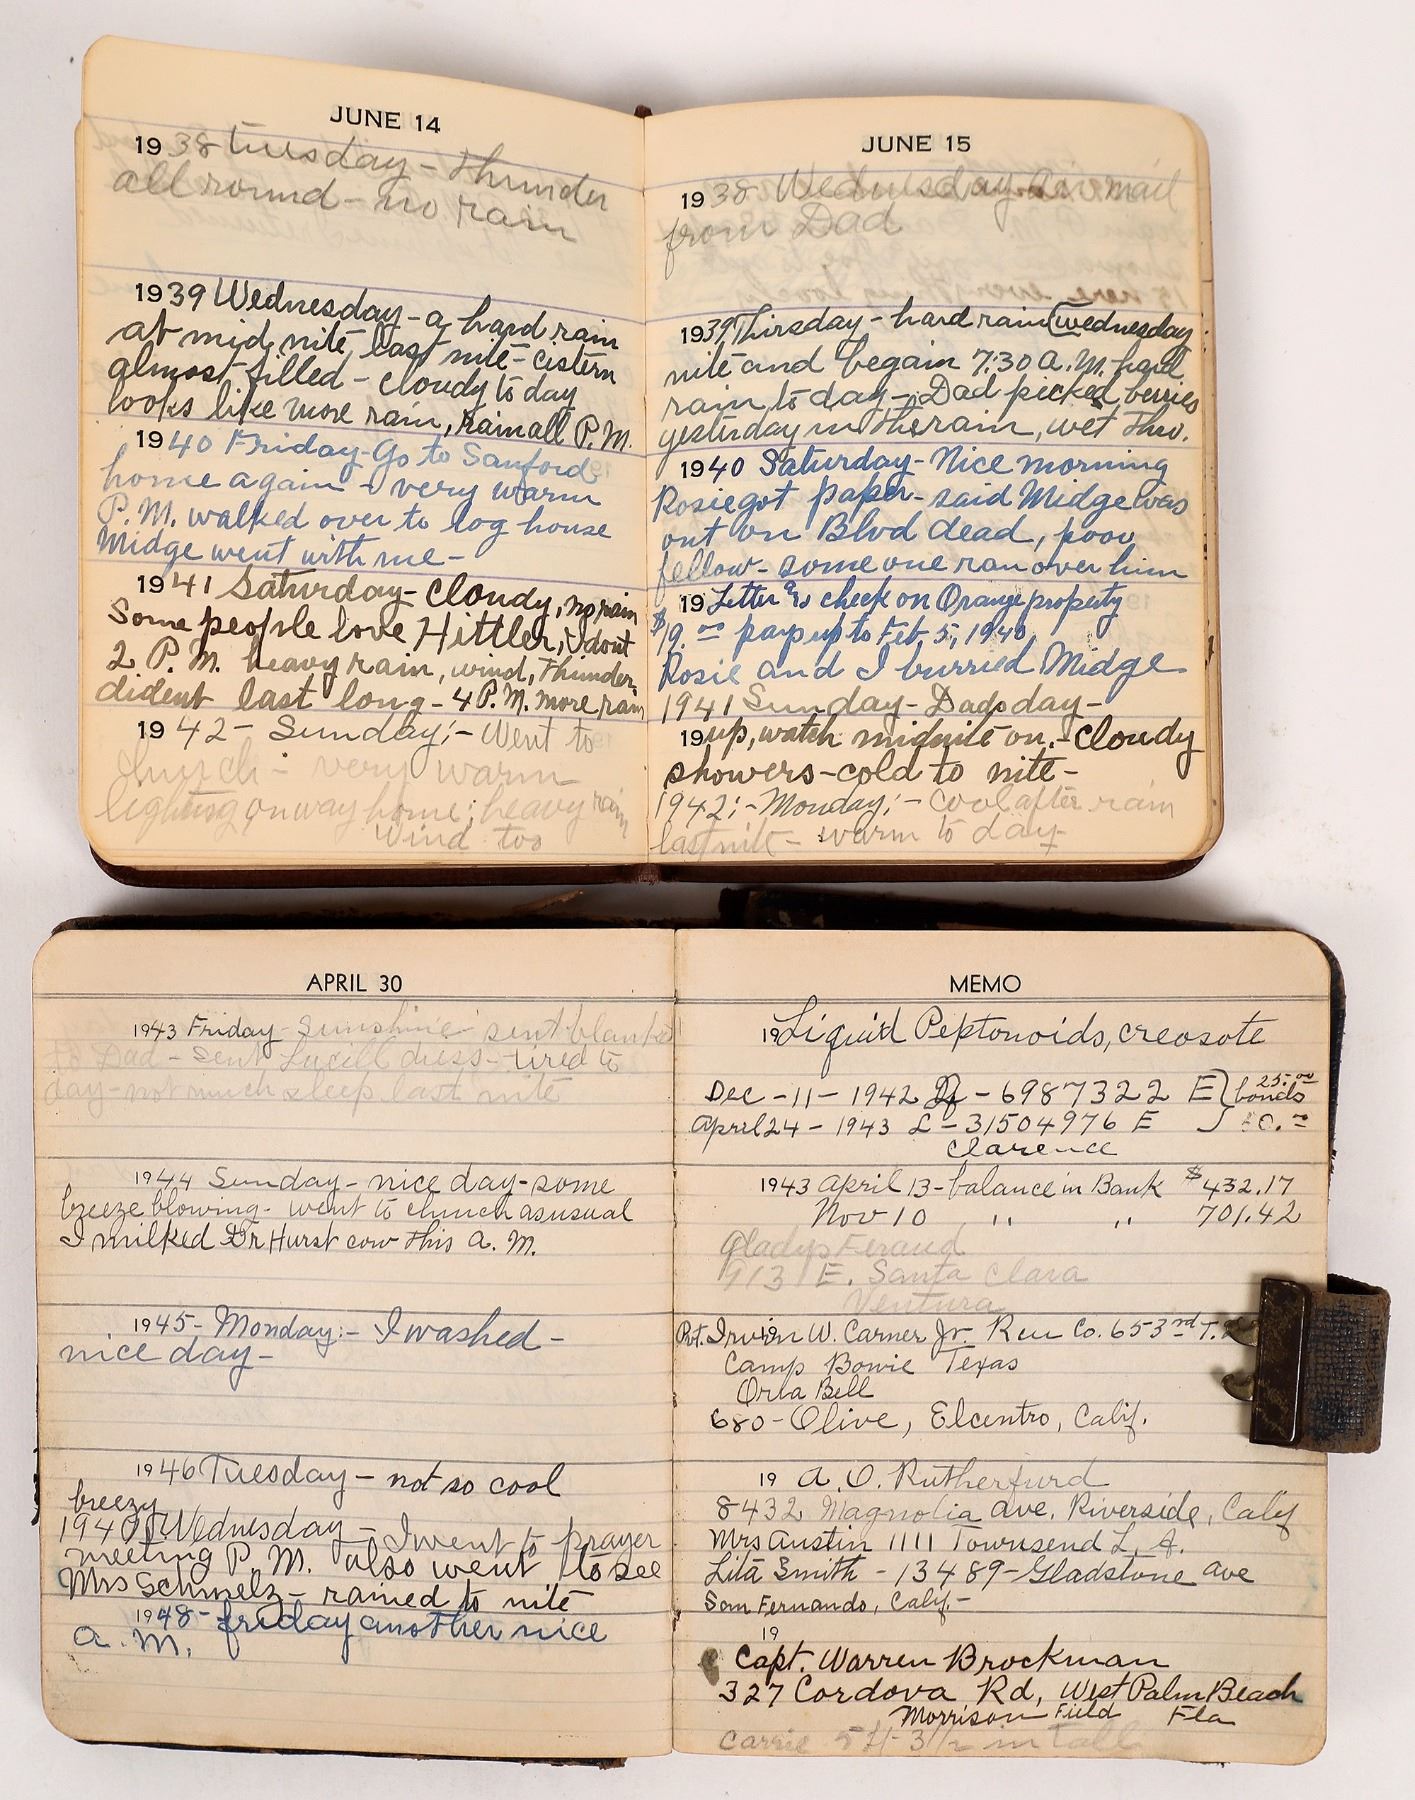 JUNE 14
1938 tuesday - thunder
all round - no rain
1939 Wednesday - a hard rain
at mid nite, last nite - cistern
almost filled - cloudy to day
looks like more rain, rain all P.M.
1940 Friday - Go to Sanford
home again - very warm
P.M. walked over to log house
Midge went with me -
1941 Saturday - cloudy, no rain
Some people love Hittler, I dont
2 P.M. heavy rain, wind, Thunder,
dident last long - 4 P.M. more rain
1942 - Sunday; - Went to
church - very warm
lighting on way home; heavy rain
Wind too
JUNE 15
1938 Wednesday Air mail
from Dad
1939 Thirsday - hard rain (wednesday
nite and begain 7:30 A.M. hard
rain to day - Dad picked berries
yesterday in the rain, wet thro.
1940 Saturday - Nice morning
Rosie got paper - said Midge was
out on Blvd dead, poor
fellow - some one ran over him
19 Letter & check on Orange property
$19.00 pays up to Feb. 5, 1940
Rosie and I burried Midge
1941 Sunday - Dads day -
19 up, watch midnite on. - cloudy
showers - cold to nite -
1942; - Monday; - cool after rain
last nite - warm to day -
APRIL 30
1943 Friday - Sunshine sent blanket
to Dad - sent Lucill dress - tired to
day - not much sleep last nite
1944 Sunday - nice day - some
breeze blowing - went to church as usual
I milked Dr Hurst cow this A.M.
1945 - Monday: - I washed -
nice day -
1946 Tuesday - not so cool
breezy
1947 Wednesday - I went to prayer
meeting P.M. also went to see
Mrs Schmelz - rained to nite
1948 - friday another nice
A.M.
MEMO
19 Liquid Peptonoids, creosote
Dec - 11 - 1942 - 6987322 E } 25.00 bonds
April 24 - 1943 L - 31504976 E } 50.00
Clarence
1943 April 13 - balance in Bank $432.17
Nov 10 " " 701.42
Gladys Feraud
913 E. Santa Clara
Ventura
Pvt. Irvin W. Carner Jr. Rcn Co. 653rd T.
Camp Bowie Texas
Orla Bell
680 - Olive, Elcentro, Calif.
19 A. O. Rutherfurd
8432 Magnolia ave. Riverside, Calif
Mrs Austin 1111 Townsend L. A.
Lita Smith - 13489 - Gladstone ave
San Fernando, Calif -
19
Capt. Warren Brockman
327 Cordova Rd, West Palm Beach
Morrison Field Fla
Carrie 5 ft 3 1/2 in Tall